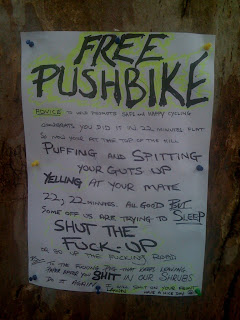 FREE
PUSHBIKE
ADVICE TO HELP PROMOTE SAFE AND HAPPY CYCLING
CONGRATS YOU DID IT IN 22 MINUTES FLAT
SO NOW YOUR AT THE TOP OF THE HILL
PUFFING AND SPITTING
YOUR GUTS UP
YELLING AT YOUR MATE
22, 22 MINUTES. ALL GOOD BUT
SOME OF US ARE TRYING TO SLEEP
SHUT THE
FUCK-UP
OR GO UP THE FUCKING ROAD
TO THE FUCKING THAT KEEPS LEAVING
SHIT IN OUR SHRUBS
DO IT AGAIN I WILL SHIT ON YOUR FRONT
LAWN HAVE A NICE DAY